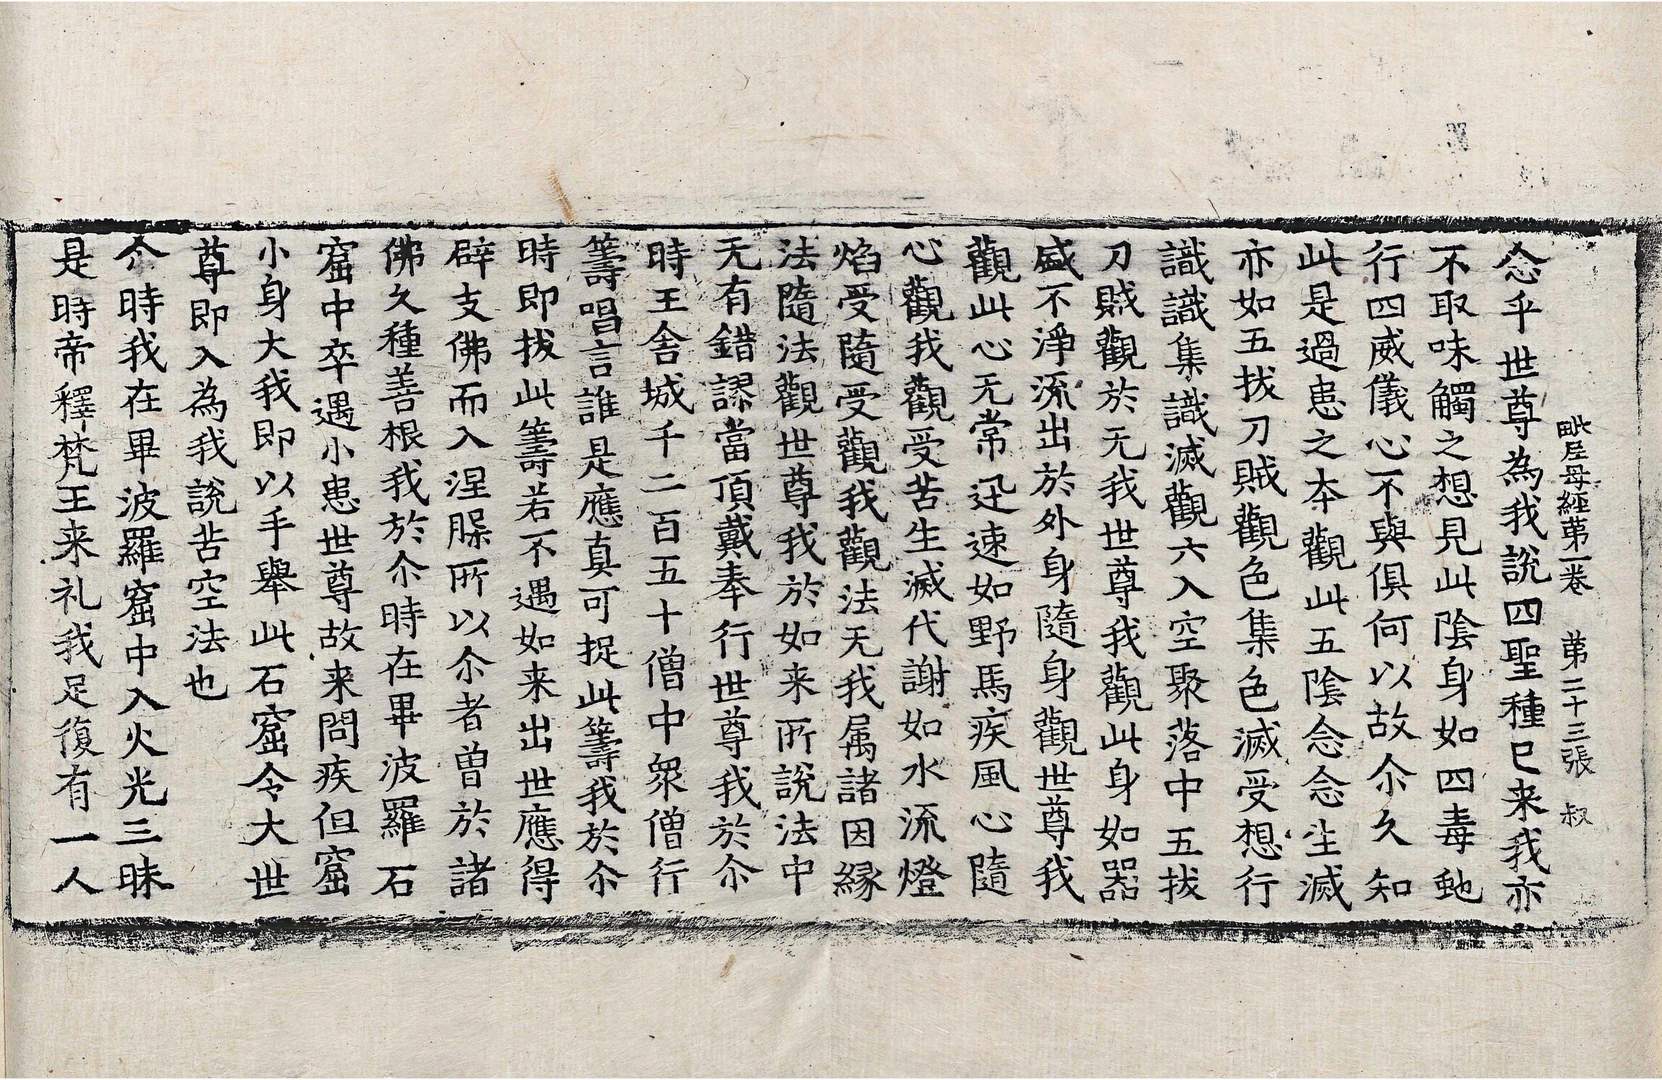 毗尼母經苐一卷　苐二十三張　叔
念乎世尊為我說四聖種已来我亦
不取味觸之想見此陰身如四毒虵
行四威儀心不與俱何以故尒久知
此是過患之夲觀此五陰念念生滅
亦如五拔刀賊觀色集色滅受想行
識識集識滅觀六入空聚落中五拔
刀賊觀於无我世尊我觀此身如器
盛不淨流出於外身隨身觀世尊我
觀此心无常迅速如野馬疾風心隨
心觀我觀受苦生滅代謝如水流燈
焰受隨受觀我觀法无我属諸因縁
法隨法觀世尊我於如来所說法中
无有錯謬當頂戴奉行世尊我於尒
時王舍城千二百五十僧中衆僧行
籌唱言誰是應真可捉此籌我於尒
時即拔此籌若不遇如来出世應得
辟支佛而入涅槃所以尒者曽於諸
佛久種善根我於尒時在畢波羅石
窟中卒遇小患世尊故来問疾但窟
小身大我即以手舉此石窟令大世
尊即入為我說苦空法也
尒時我在畢波羅窟中入火光三昧
是時帝釋梵王来礼我足復有一人